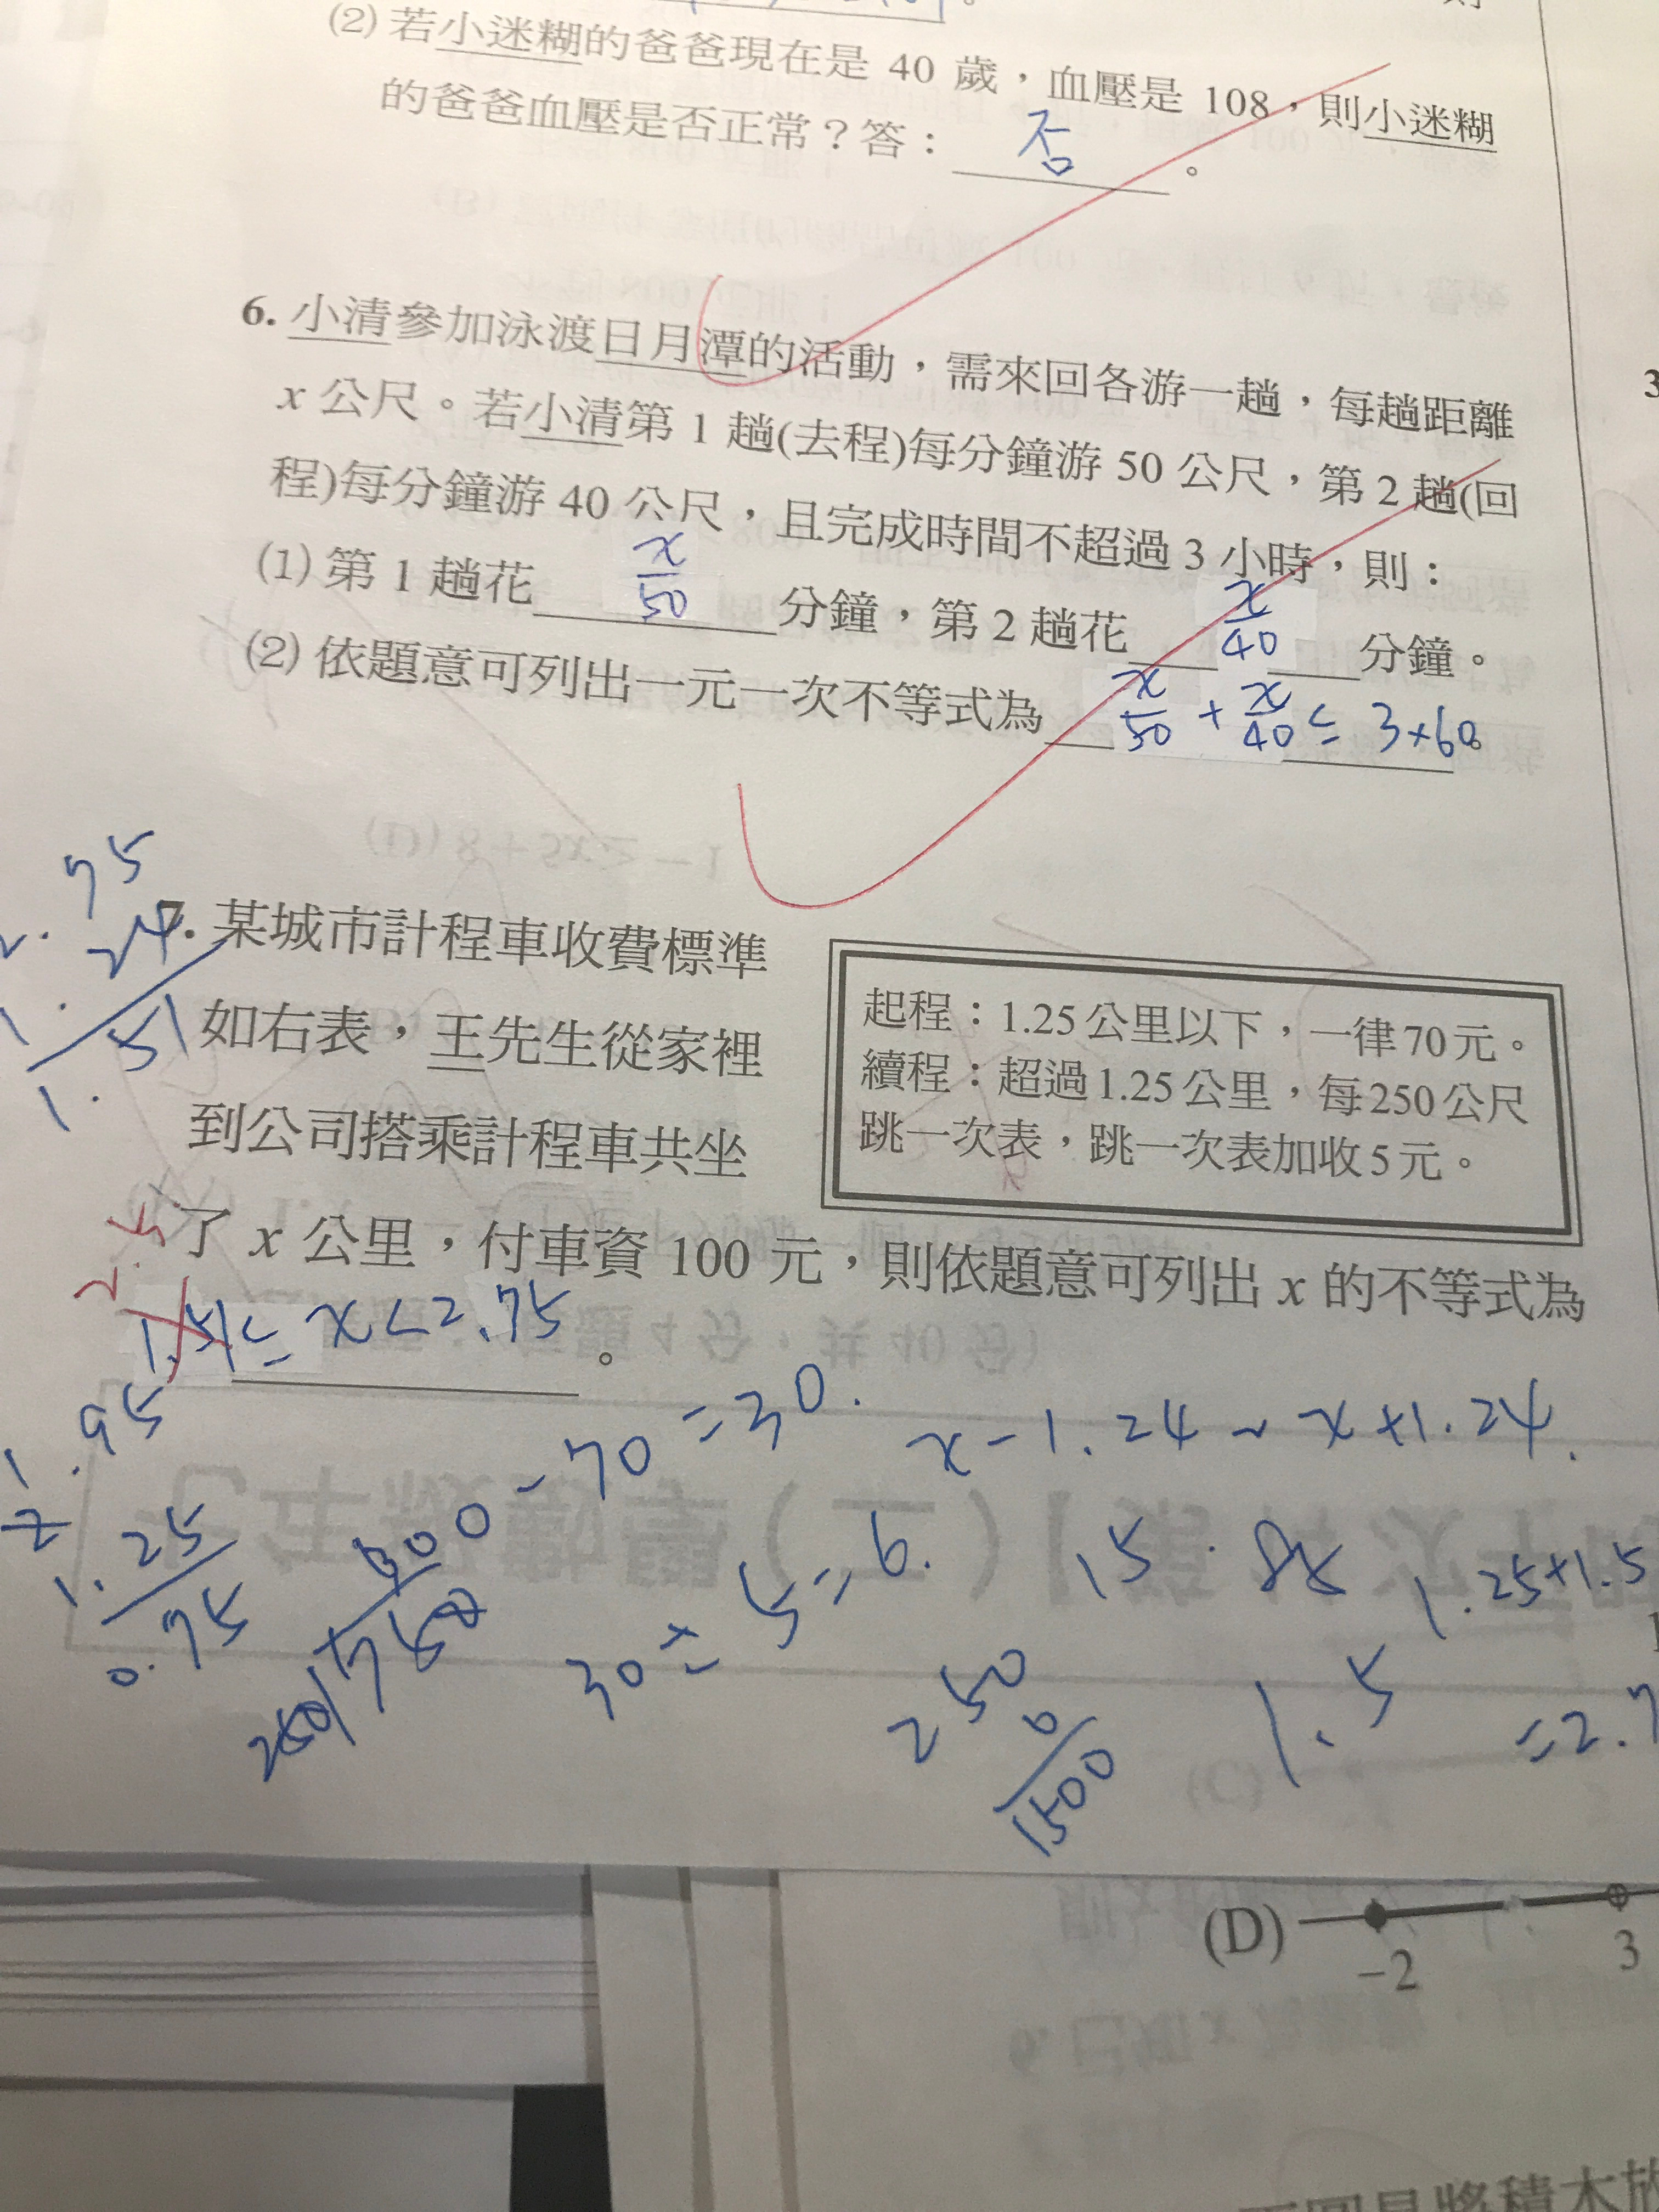 (2) 若小迷糊的爸爸現在是 40 歲，血壓是 108，則小迷糊
的爸爸血壓是否正常？答：否。
6. 小清參加泳渡日月潭的活動，需來回各游一趟，每趟距離
x 公尺。若小清第 1 趟(去程)每分鐘游 50 公尺，第 2 趟(回
程)每分鐘游 40 公尺，且完成時間不超過 3 小時，則：
(1) 第 1 趟花 x/50 分鐘，第 2 趟花 x/40 分鐘。
(2) 依題意可列出一元一次不等式為 x/50 + x/40 ≤ 3×60。
7. 某城市計程車收費標準
如右表，王先生從家裡
到公司搭乘計程車共坐
了 x 公里，付車資 100 元，則依題意可列出 x 的不等式為
1.51 ≤ x < 2.75。
起程：1.25公里以下，一律70元。
續程：超過1.25公里，每250公尺
跳一次表，跳一次表加收5元。
2.75
1.24
1.51
2.5
1.95
1.25
0.75
100-70=30.
x-1.24~x+1.24.
30÷5=6.
15
1.25+1.5
=2.7
250
6
1500
1.5
(C)
(D)
-2
3